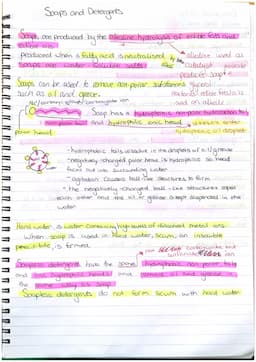 Soaps and Detergents
Soaps are produced by the alkaline hydrolysis of edible fats and
edible oils
produced when a fatty acid is neutralised by
soaps are water soluble salts
alkaline used as
catalyst
Soaps can be used to remove non-polar substances
such as oil and grease.
Soap has a hydrophobic non-polar hydrocarbon tail
non polar tail and hydrophilic ionic head
polar head
• hydrophobic tails dissolve in the droplets of oil/grease
• negatively charged polar head is hydrophilic so head
faces out into surrounding water
• agitation causes ball-like structures to form
• the negatively charged ball-like structures repel
each other and the oil or grease is kept suspended in the
water
Hard water is water containing high levels of dissolved metal ions
When soap is used in hard water, scum, an insoluble
precipitate, is formed
Soapless detergents have the same hydrophobic non polar tails
and hydrophilic heads and remove oil and grease in
the same way as soap
Soapless detergents do not form scum with hard water